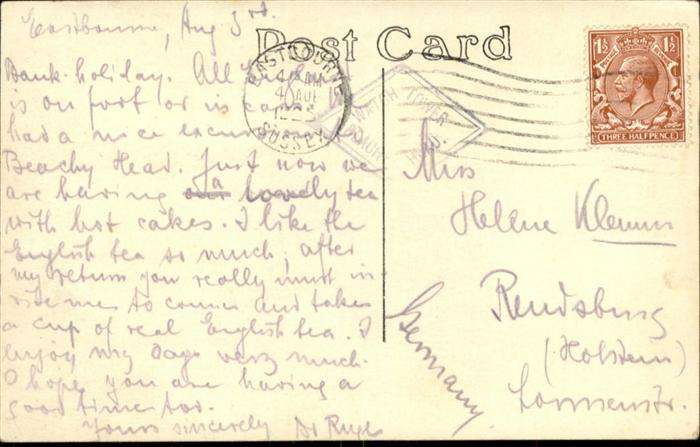 Eastbourne, Aug 3rd.
Bank-holiday. All
is on foot or in cars. We
had a nice excursion to
Beachy Head. Just now we
are having a lovely tea
with hot cakes. I like the
English tea so much, after
my return you really must in-
vite me to come and take
a cup of real English tea. I
enjoy my days very much.
I hope you are having a
good time too.
Yours sincerely
Post Card
EASTBOURNE
4 AUG
SUSSEX
WATCH TOWER
1½
1½
THREE HALFPENCE
Miss
Helene
Rendsburg
(Holstein)
Germany